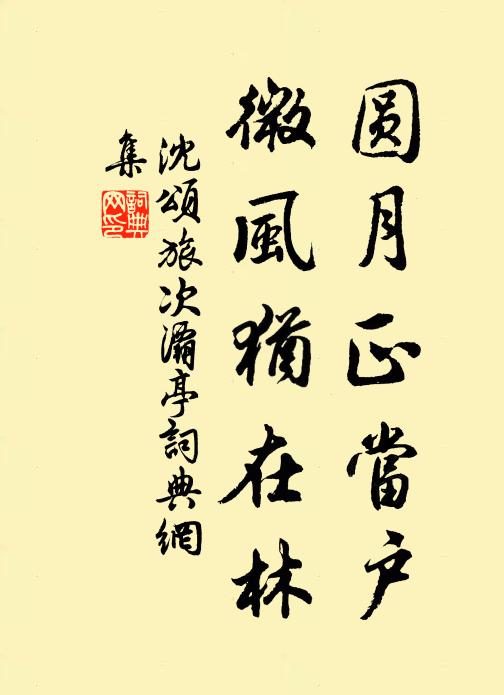 圆月正當户
微風猶在林
沈頌旅次灞亭詞典網
集
詞典
网印